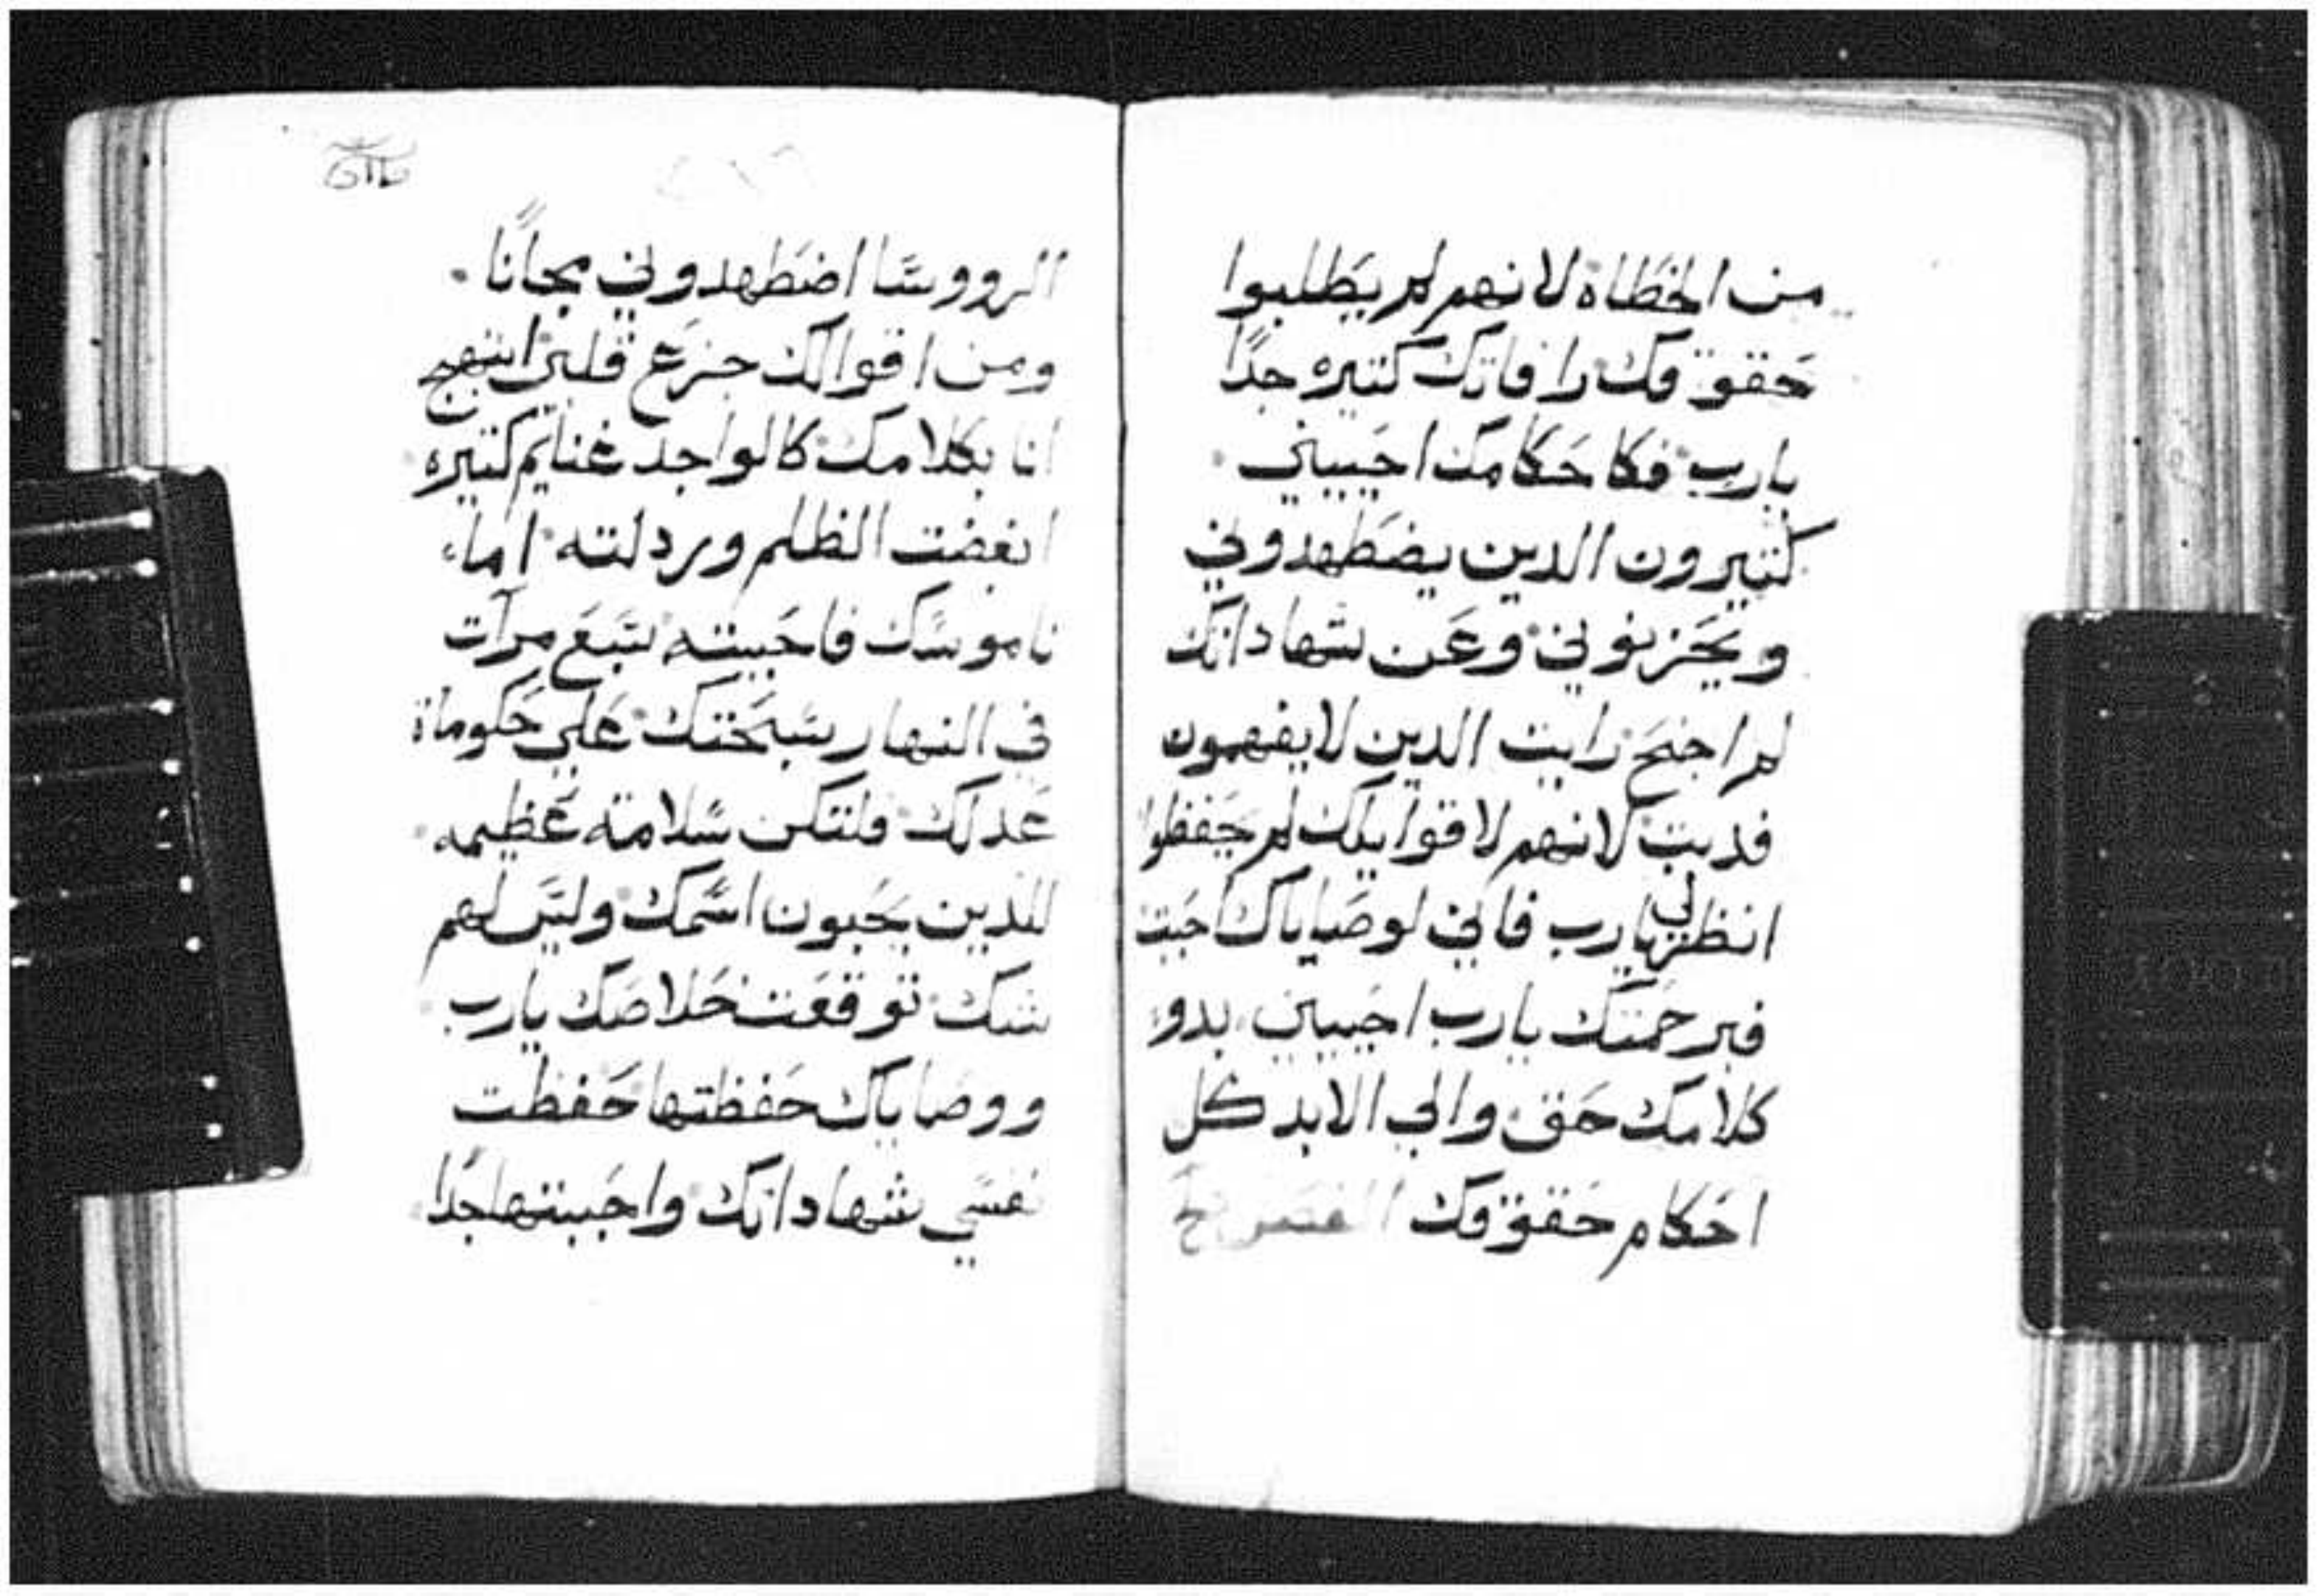 من الخطاه لانهم لم يطلبوا
حقوقك رافاتك كتيره جدًا
يارب فكاحكامك احييني
كتيرون الدين يضطهدوني
ويحزنوني وعن شهاداتك
لم اجنح رايت الدين لا يفهمون
فدبت لانهم لاقوايلك لم يحفظوا
انظر لي يارب فاني لوصاياك احببت
فبرحمتك يارب احييني بدو
كلامك حق والي الابد كل
احكام حقوقك
الرووسا اضطهدوني مجانًا
ومن اقوالك جزع قلبي ابتهج
انا بكلامك كالواجد غنايم كتيره
ابغضت الظلم وردلته اما
ناموسك فاحببته سبع مرات
في النهار سبحتك علي حكوماة
عدلك فلتكن سلامة عظيمه
للدين يحبون اسمك وليس لهم
شك توقعت خلاصك يارب
ووصاياك حفظتها حفظت
نفسي شهاداتك واحببتها جدًا